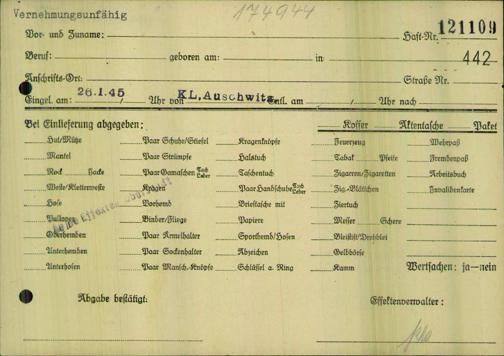 Vernehmungsunfähig 174944
Vor- und Zuname: Haft-Nr. 121109
Beruf: geboren am: in 442
Anschrifts-Ort: Straße Nr.
Eingel. am: 26.1.45 / Uhr von KL. Auschwitz Entl. am: / Uhr nach
Bei Einlieferung abgegeben: Koffer Aktentasche Paket
Hut/Mütze Paar Schuhe/Stiefel Kragenknöpfe Feuerzeug Wehrpaß
Mantel Paar Strümpfe Halstuch Tabak Pfeife Fremdenpaß
Rock Jacke Paar Gamaschen Tuch Leder Taschentuch Zigarren/Zigaretten Arbeitsbuch
Weste/Kletterweste Kragen Paar Handschuhe Tuch Leder Zig.-Blättchen Invalidenkarte
Hose Vorhemd Brieftasche mit Ziertuch
Pullover Binder/Fliege Papiere Messer Schere
Oberhemden Paar Ärmelhalter Sporthemd/Hosen Bleistift/Drehblei
Unterhemden Paar Sockenhalter Abzeichen Geldbörse
Unterhosen Paar Mansch.-Knöpfe Schlüssel a. Ring Kamm Wertsachen: ja—nein
Keine Effekten
Abgabe bestätigt: Effektenverwalter: